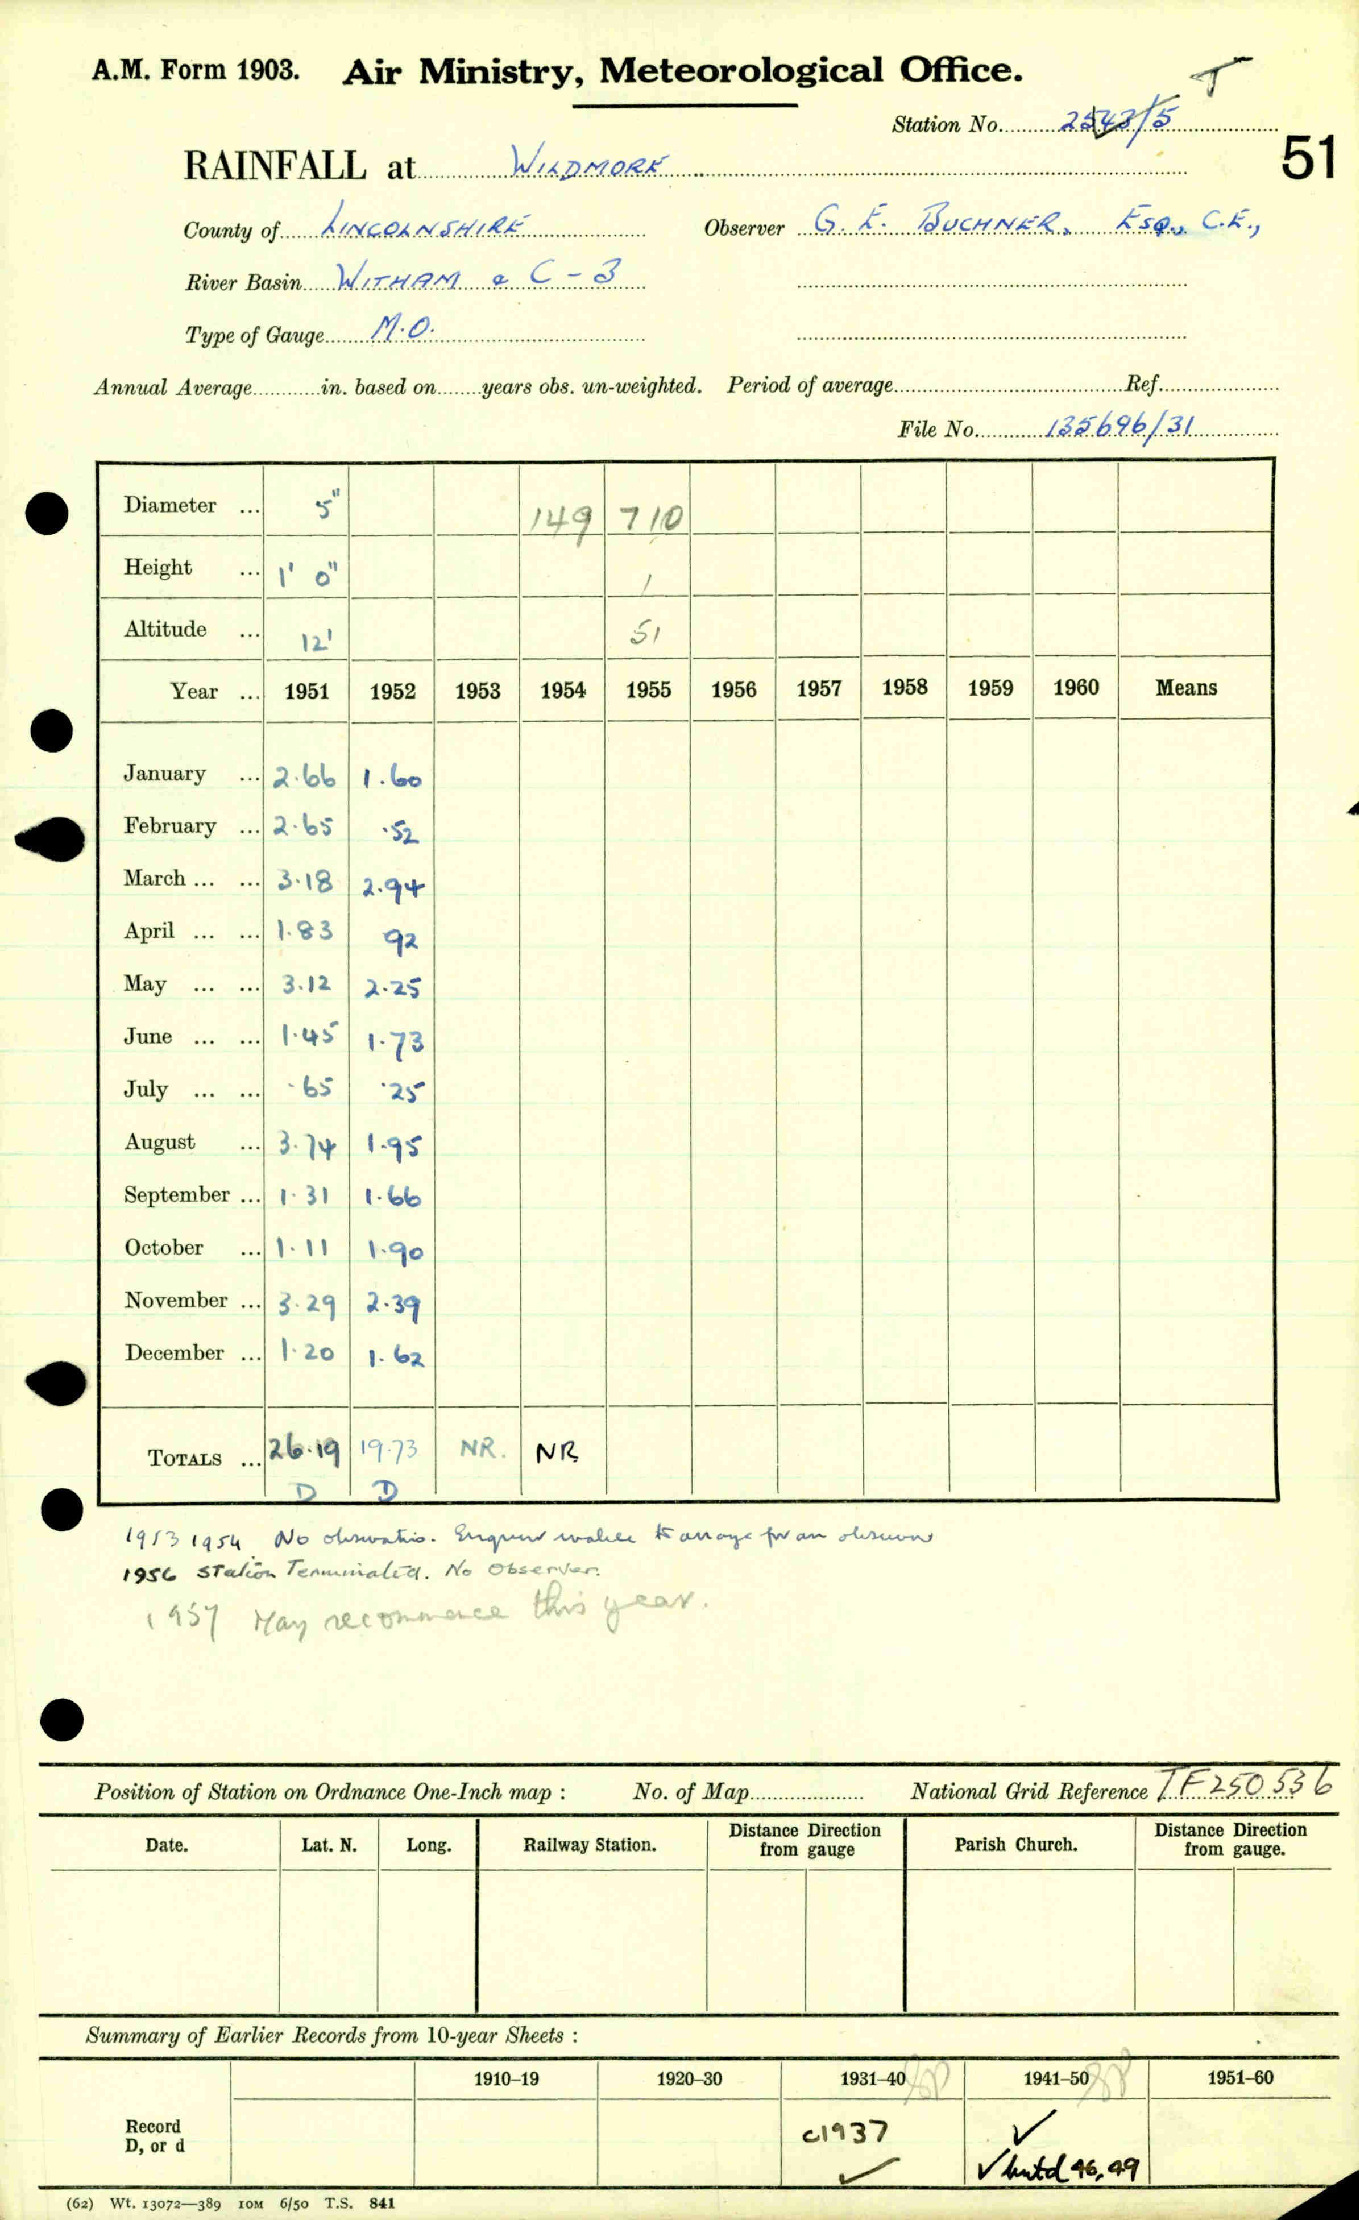 A.M. Form 1903. Air Ministry, Meteorological Office. T
Station No. 2543/5
51
RAINFALL at WILDMORE
County of LINCOLNSHIRE Observer G. E. BUCHNER, ESQ., C.E.,
River Basin WITHAM & C - 3
Type of Gauge M.O.
Annual Average in. based on years obs. un-weighted. Period of average Ref.
File No. 135696/31
Diameter ... 5" 149 710
Height ... 1' 0" 1
Altitude ... 12' 51
Year ... 1951 1952 1953 1954 1955 1956 1957 1958 1959 1960 Means
January ... 2.66 1.60
February ... 2.65 .52
March ... ... 3.18 2.94
April ... ... 1.83 92
May ... ... 3.12 2.25
June ... ... 1.45 1.73
July ... ... .65 .25
August ... 3.74 1.95
September ... 1.31 1.66
October ... 1.11 1.90
November ... 3.29 2.39
December ... 1.20 1.62
TOTALS ... 26.19 19.73 NR. NR
D D
1953 1954 No observations. Engineer unable to arrange for an observer
1956 Station Terminated. No Observer.
1957 May recommence this year.
Position of Station on Ordnance One-Inch map : No. of Map National Grid Reference TF250536
Date. Lat. N. Long. Railway Station. Distance from gauge Direction Parish Church. Distance from gauge. Direction
Summary of Earlier Records from 10-year Sheets :
1910–19 1920–30 1931–40 1941–50 1951–60
Record D, or d c1937 ✓ ✓
✓ 46, 49
(62) Wt. 13072—389 10M 6/50 T.S. 841